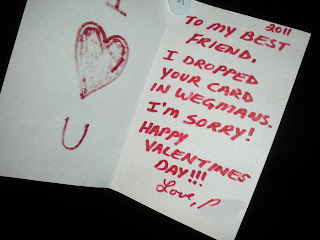 I
U
2011
TO MY BEST
FRIEND.
I DROPPED
YOUR CARD
IN WEGMANS.
I'M SORRY!
HAPPY
VALENTINES
DAY!!!
Love, P